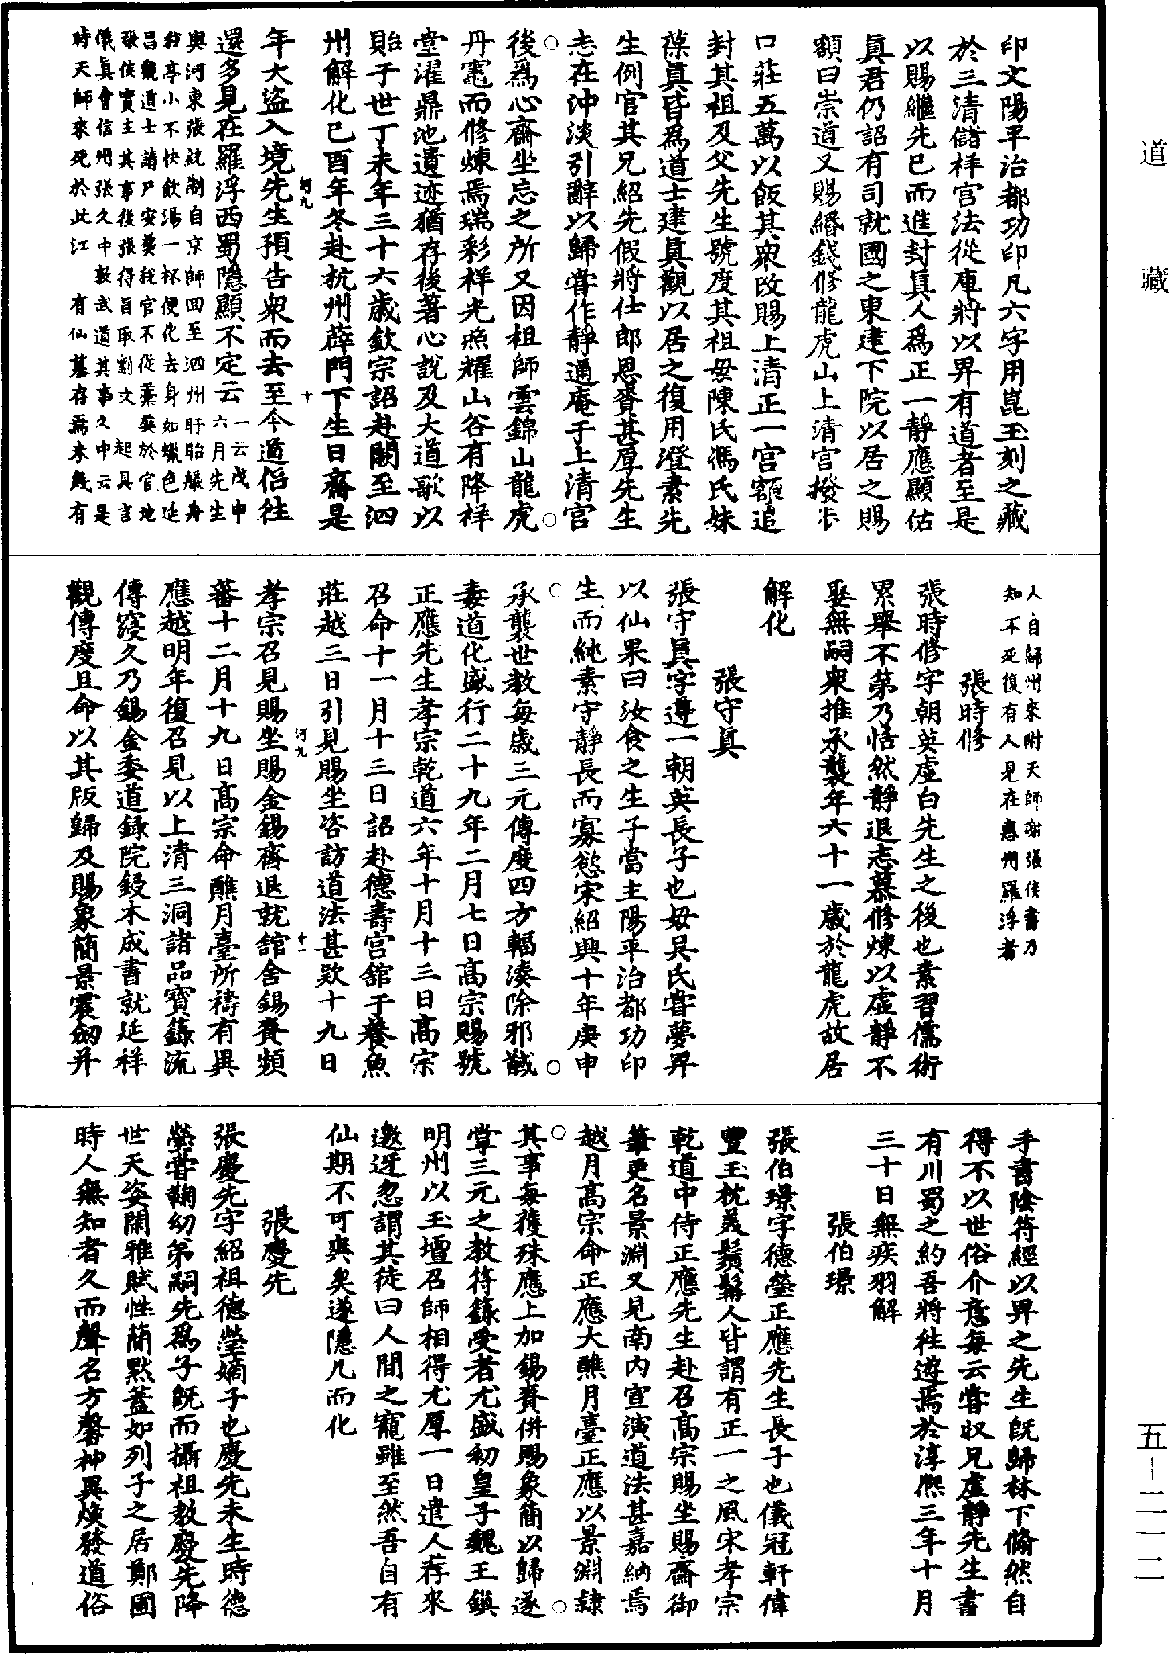 印文陽平治都功印凡六字用崑玉刻之藏
於三清儲祥宮法從庫將以畀有道者至是
以賜繼先已而進封真人為正一靜應顯佑
真君仍詔有司就國之東建下院以居之賜
額曰崇道又賜緡錢修龍虎山上清宮撥步
口莊五萬以飯其眾改賜上清正一宮額追
封其祖及父先生號度其祖母陳氏馮氏妹
葆真皆為道士建真觀以居之復用澄素先
生例官其兄紹先假將仕郎恩賚甚厚先生
志在沖淡引辭以歸嘗作靜通庵于上清宮
後為心齋坐忘之所又因祖師雲錦山龍虎
丹竃而修煉焉瑞彩祥光照耀山谷有降祥
堂濯鼎池遺迹猶存後著心說及大道歌以
貽于世丁未年三十六歲欽宗詔赴闕至泗
州解化己酉年冬赴杭州薛門下生日齋是
年大盜入境先生預告眾而去至今道侶往
還多見在羅浮西蜀隱顯不定云一云戊申六月先生
與河東張統制自京師回至泗州盱眙艤舟
於亭小不快飲湯一杯便化去身如蠟色延
昌觀道士請尸安葬我官不從藁葬於官地
張侯實主其事後張得旨取割文起具言
儀真會信州張久中毅武道其事久中云是
時天師來死於此江有仙墓存焉未幾有
人自歸州來附天師謝張侯書乃
知不死復有人見在惠州羅浮者
張時修
張時修字朝英虛白先生之後也素習儒術
累舉不第乃恬然靜退志慕修煉以虛靜不
娶無嗣眾推承襲年六十一歲於龍虎故居
解化
張守真
張守真字遵一朝英長子也母吳氏嘗夢羿
以仙果曰汝食之生子當主陽平治都功印
生而純素守靜長而寡慾宋紹興十年庚申
承襲世教每歲三元傳度四方輻湊除邪馘
毒道化盛行二十九年二月七日高宗賜號
正應先生孝宗乾道六年十月十三日高宗
召命十一月十三日詔赴德壽宮館于養魚
莊越三日引見賜坐咨訪道法甚欵十九日
孝宗召見賜坐賜金錫齋退就舘舍錫賚頻
蕃十二月十九日高宗命醮月臺所禱有異
應越明年復召見以上清三洞諸品寶籙流
傳寖久乃錫金委道錄院鋟木成書就延祥
觀傳度且命以其版歸及賜象簡景震劒并
手書陰符經以畀之先生既歸林下翛然自
得不以世俗介意每云嘗収兄虛靜先生書
有川蜀之約吾將往遊焉於淳熙三年十月
三十日無疾羽解
張伯璟
張伯璟字德瑩正應先生長子也儀冠軒偉
豐玉枕美鬚髯人皆謂有正一之風宋孝宗
乾道中侍正應先生赴召高宗賜坐賜齋御
筆更名景淵又見南內宣演道法甚嘉納焉
越月高宗命正應大醮月臺正應以景淵隸
其事每獲殊應上加錫賚併賜象簡以歸遂
掌三元之教符籙受者尤盛初皇子魏王鎮
明州以玉壇召師相得尤厚一日遣人荐來
邀迓忽謂其徒曰人間之寵雖至然吾自有
仙期不可爽矣遂隱几而化
張慶先
張慶先字紹祖德瑩嫡子也慶先未生時德
瑩嘗鞠幼弟嗣先為子既而攝祖教慶先降
世天姿閑雅賦性簡默蓋如列子之居鄭圃
時人無知者久而聲名方馨神異煥發道俗
道藏
五—二一二
河九
十
河九
十一